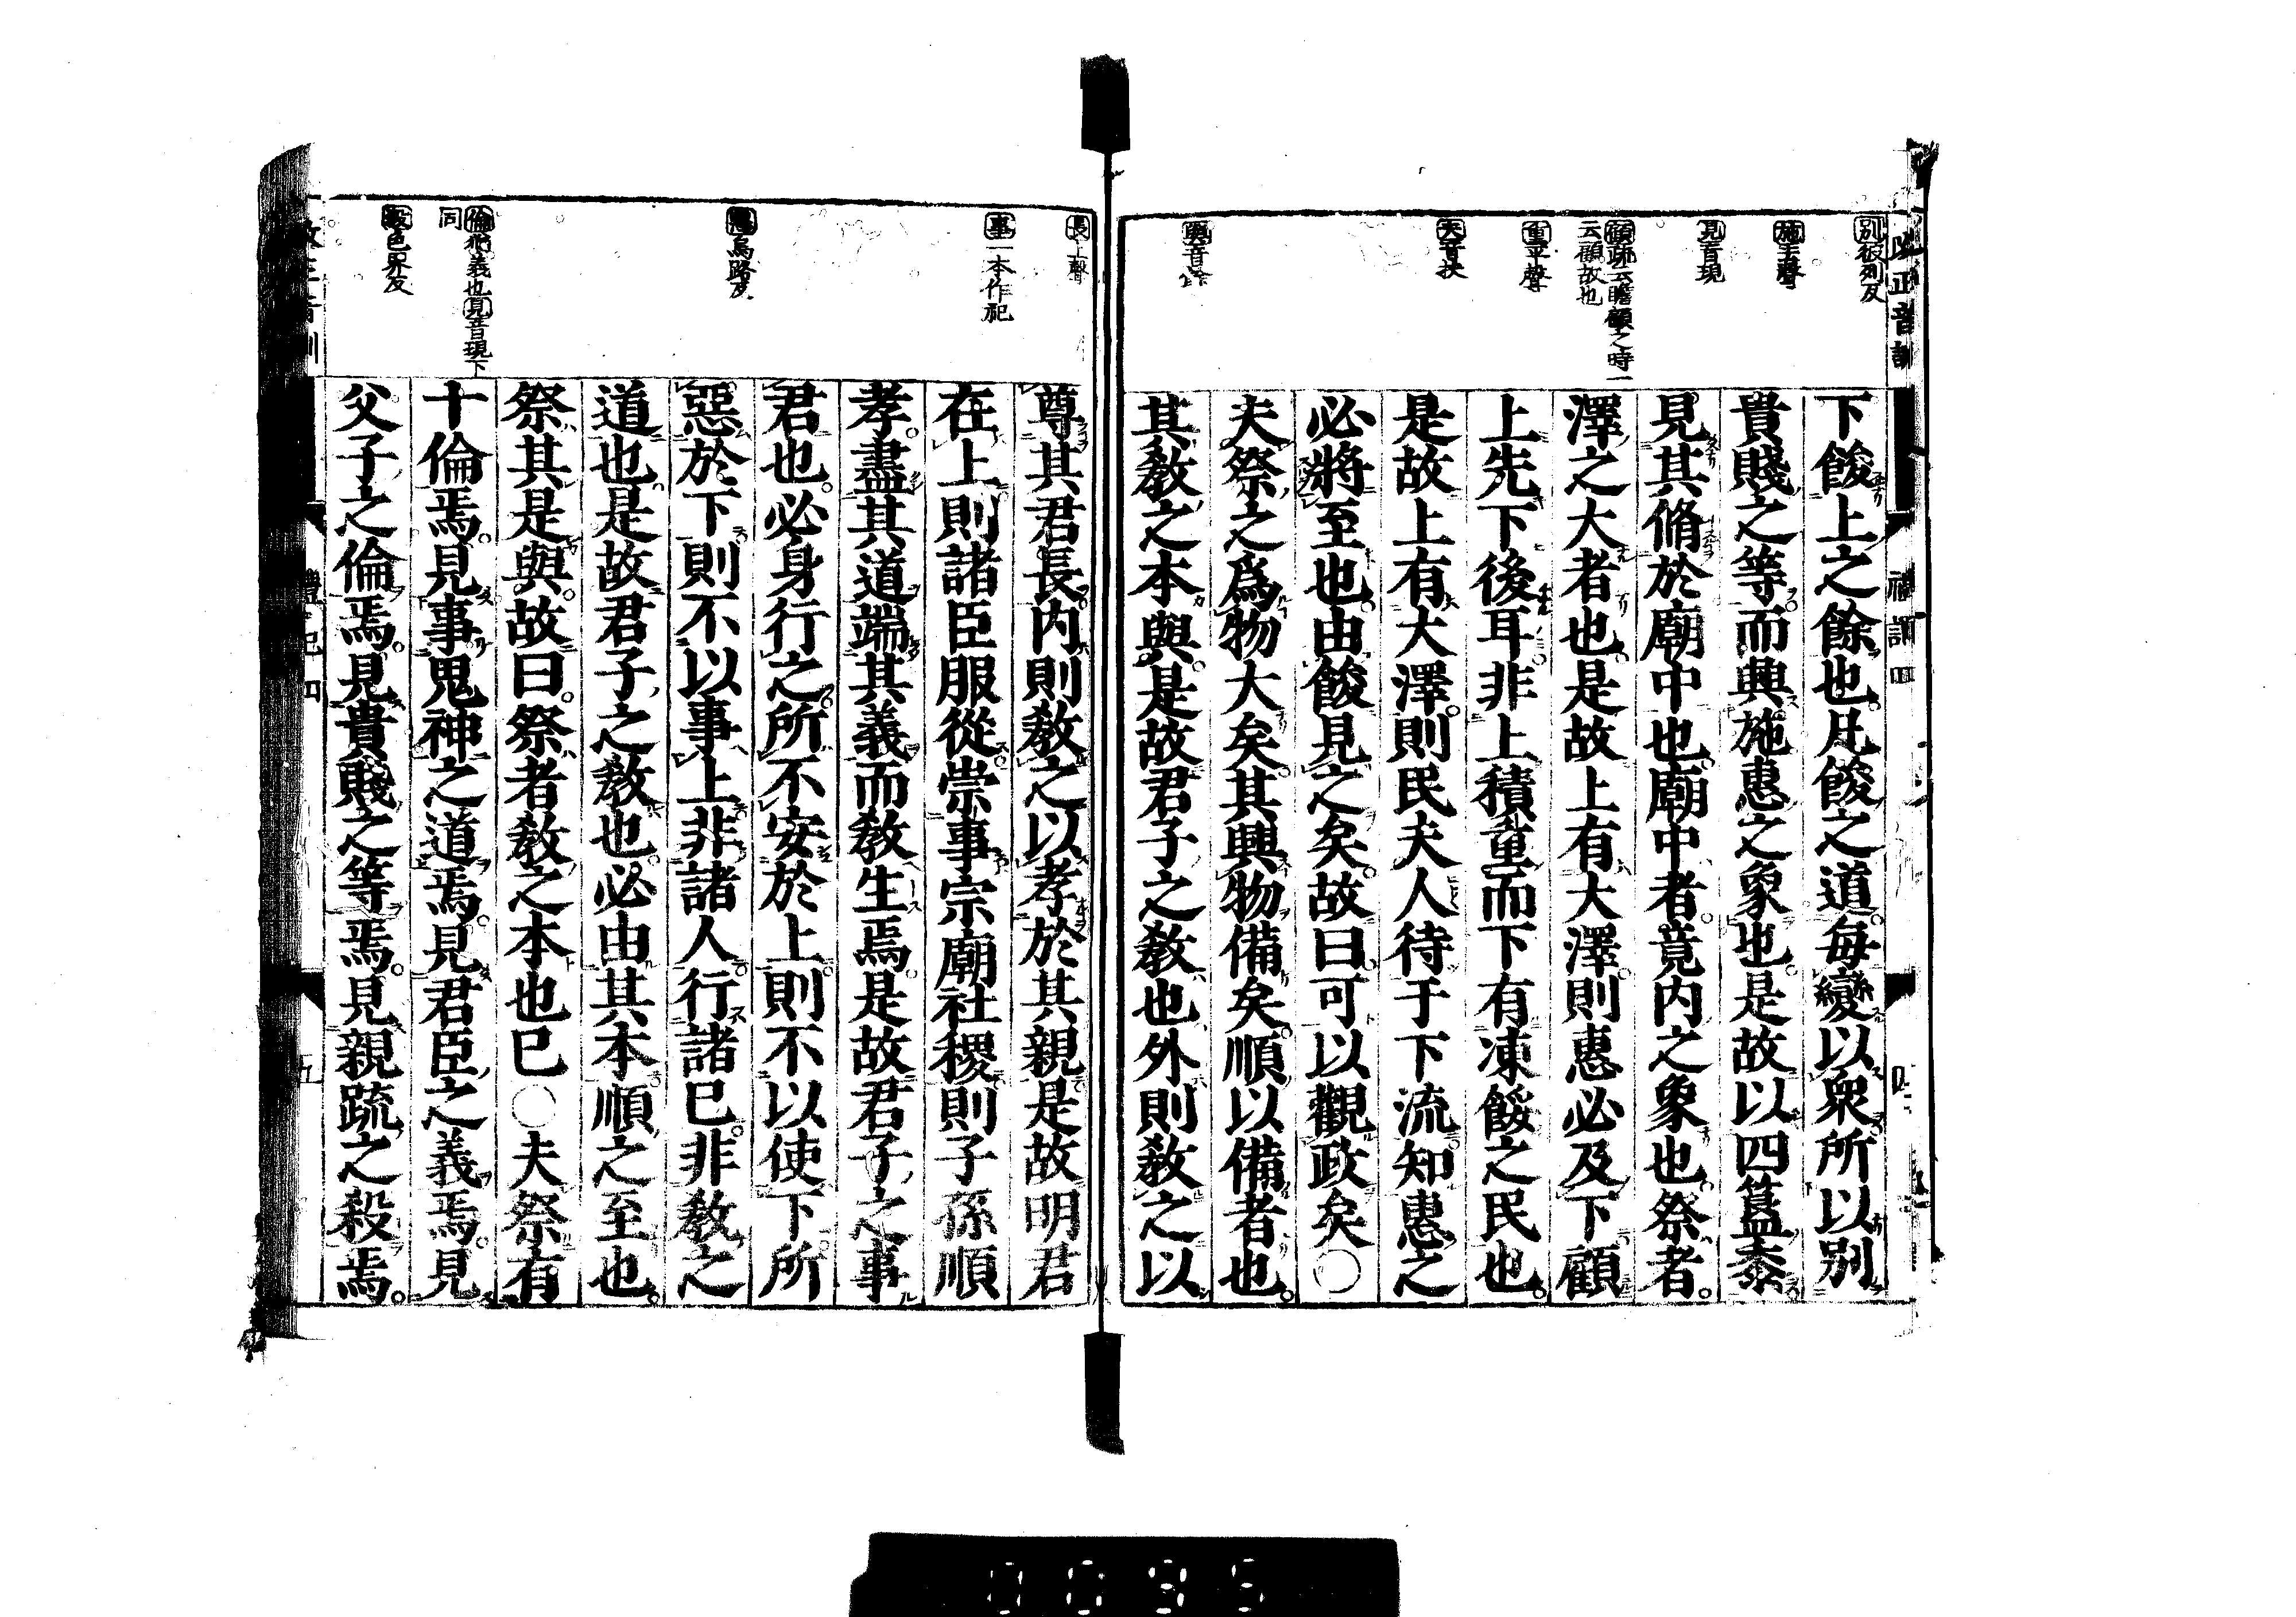 別彼列反
施去聲
見音現
顧疏云瞻顧之時一
云顧故也
重平聲
夫音扶
與音余
下餕上之餘也凡餕之道毎變以衆所以別
貴賤之等而興施惠之象也是故以四簋黍
見其脩於廟中也廟中者竟内之象也祭者
澤之大者也是故上有大澤則惠必及下顧
上先下後耳非上積重而下有凍餒之民也
是故上有大澤則民夫人待于下流知惠之
必將至也由餕見之矣故曰可以觀政矣〇
夫祭之爲物大矣其興物備矣順以備者也
其敎之本與是故君子之敎也外則敎之以
長上聲
事一本作祀
惡烏路反
倫猶義也見音現下
同
殺色界反
尊其君長内則敎之以孝於其親是故明君
在上則諸臣服從崇事宗廟社稷則子孫順
孝盡其道端其義而敎生焉是故君子之事
君也必身行之所不安於上則不以使下所
惡於下則不以事上非諸人行諸已非敎之
道也是故君子之敎也必由其本順之至也
祭其是與故曰祭者敎之本也已〇夫祭有
十倫焉見事鬼神之道焉見君臣之義焉見
父子之倫焉見貴賤之等焉見親疏之殺焉
禮記四
五
0095